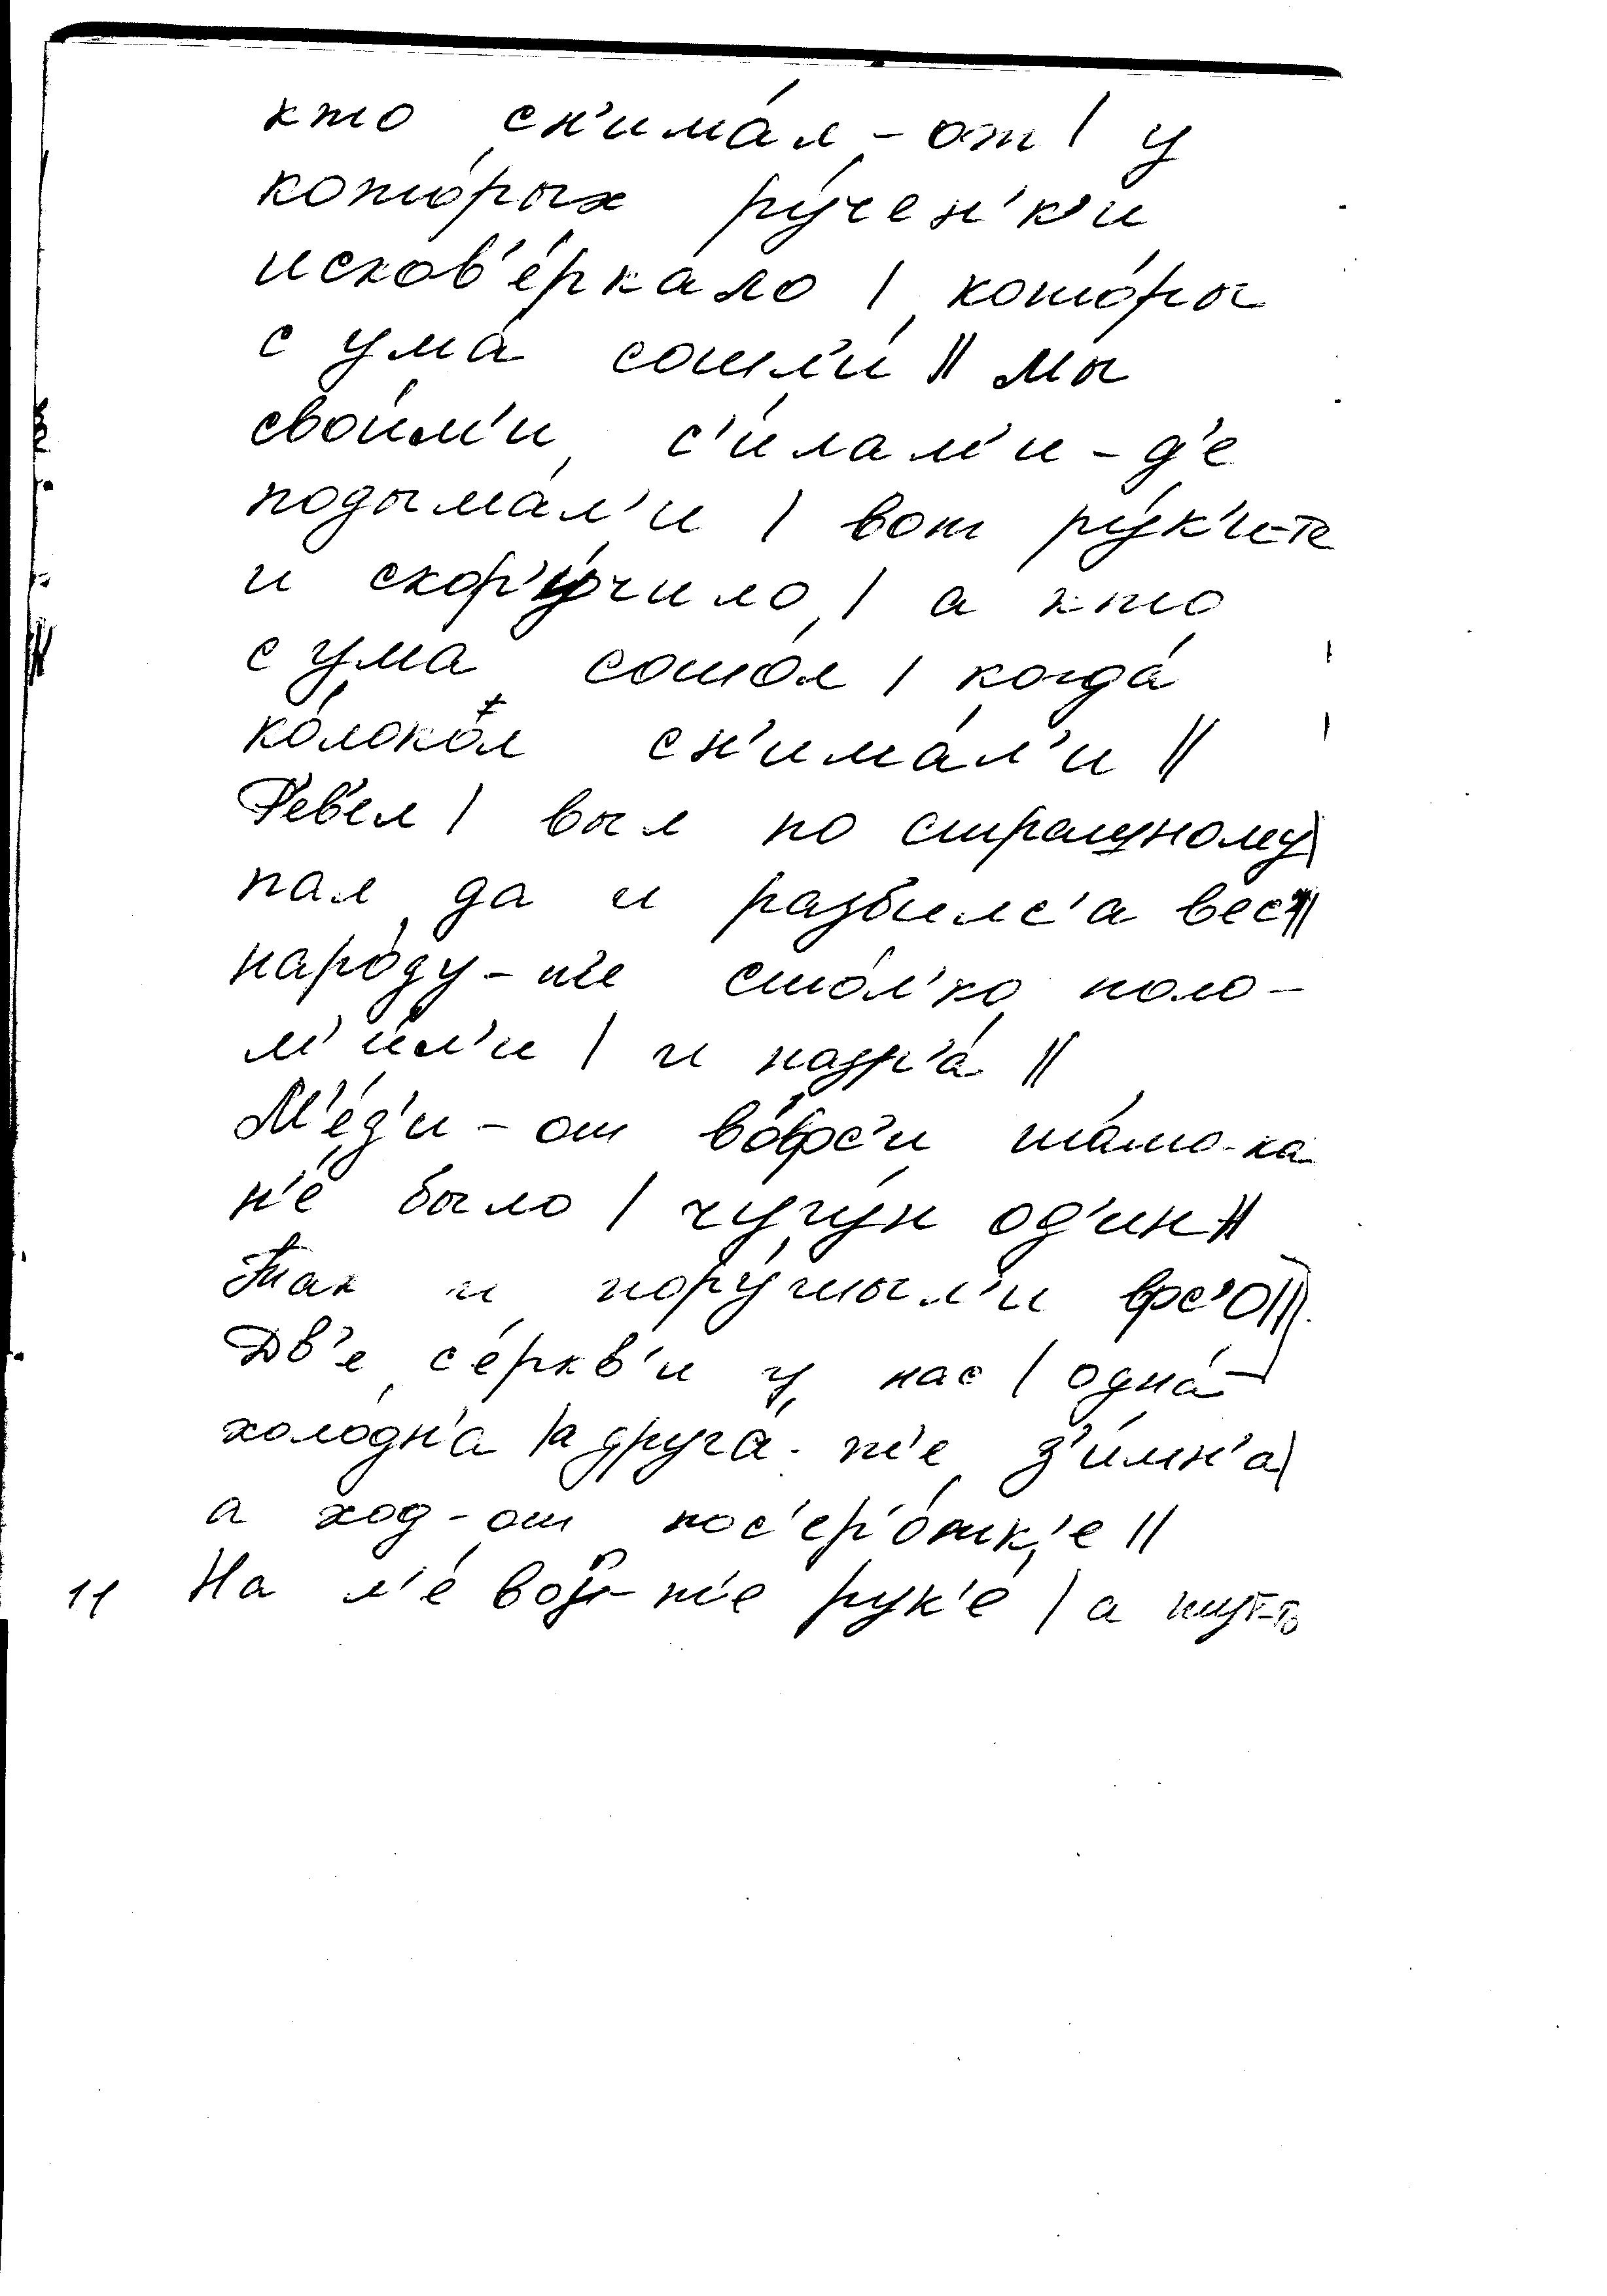 кто сн'има́л-от | у
кото́рых ру́чен'к'и
исков'е́ркало | кото́ры
с ума́ сошл'и́ || мы
свои́м'и с'и́лам'и-д'е
подыма́л'и | вот ру́к'и-те
и скор'у́чило | а кто
с ума́ сошо́л | когда́
ко́локол сн'има́л'и ||
Р'ев'ел | выл по страшному |
пал да и разбилс'а вес' ||
наро́ду-т'е сто́л'ко поло-
м'и́л'и | и назр'а́ ||
М'е́д'и-от во́фс'и та́мо-ка
н'е́ было | чугу́н од'ин ||
Так и нору́шыл'и фс'о |||
Дв'е се́ркв'и у нас | одна́
холо́дн'а | а друга́-т'е з'и́мн'а |
а ход-от пос'ер'о́тк'е ||
11 На л'е́вой-т'е рук'е́ | а